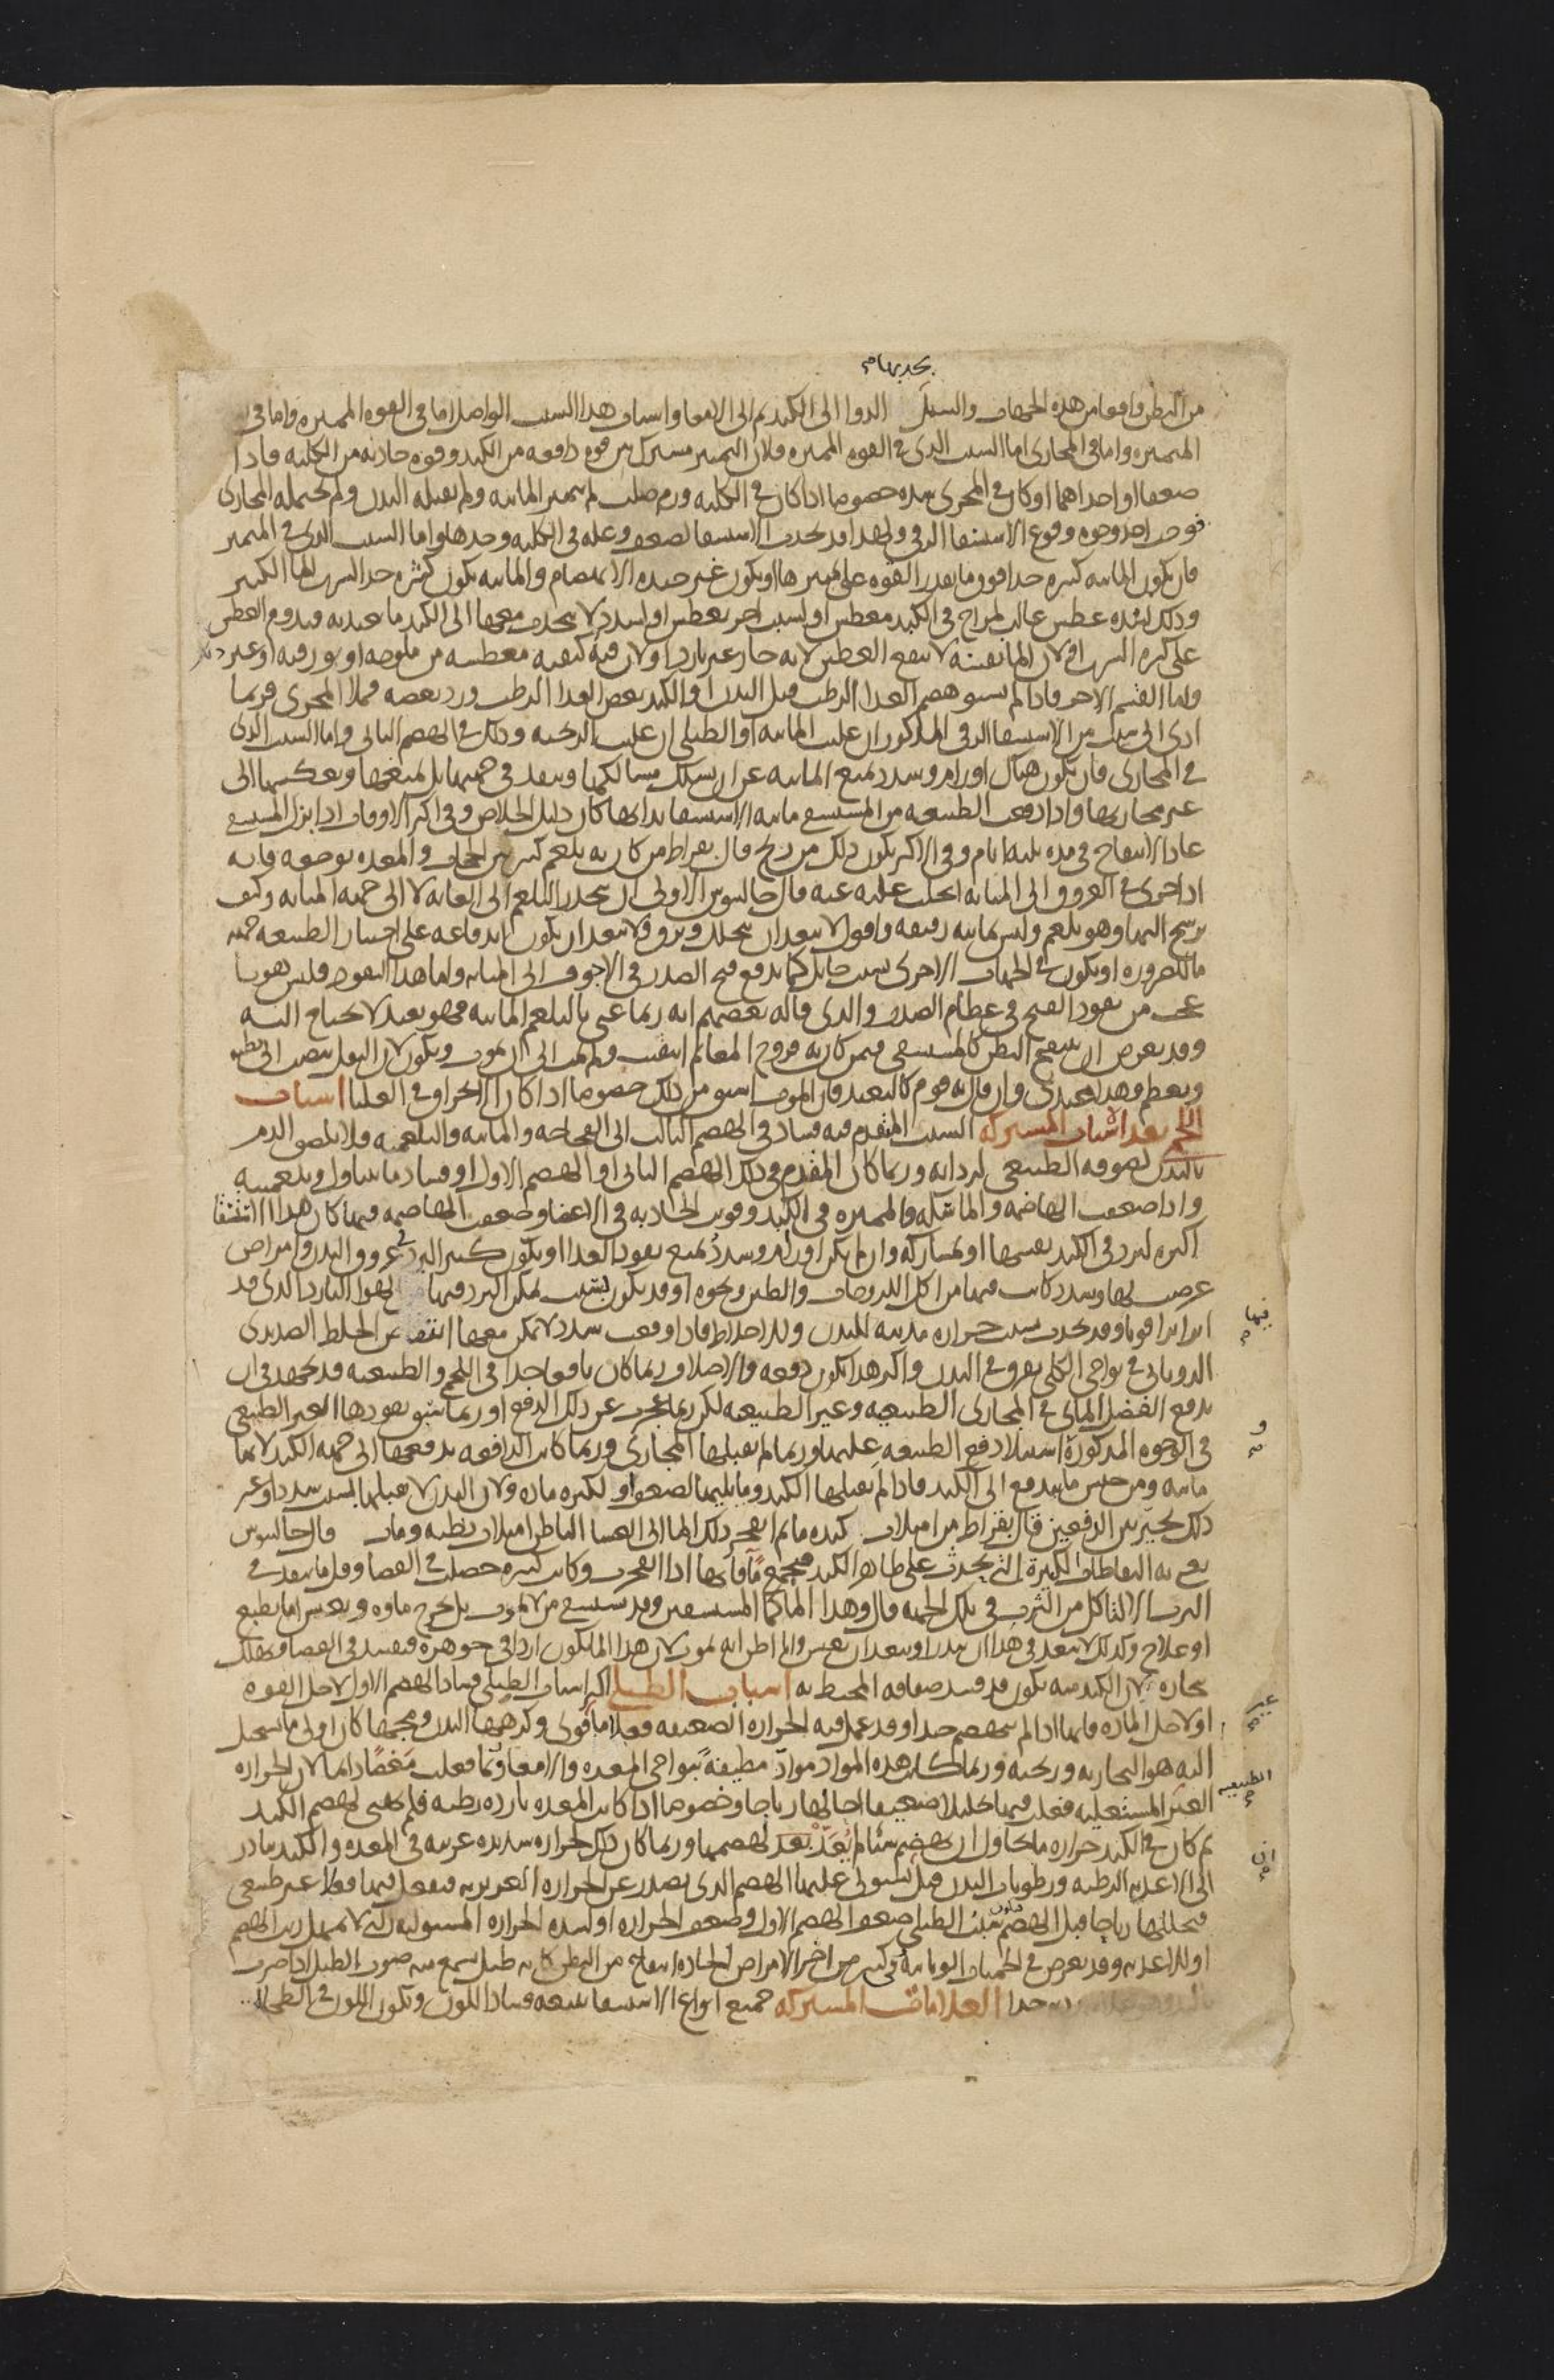 يجدبها م
من البطن واقعا من هذه الجهات والسبيل الدوا الى الكبد ثم الى الامعا واسباب هذا السبب الواصل اما في القوه المميزه واما في
المتميزه واما في المجارى اما السبب الذى في القوه المميزه فلان التمييز مشترك بين قوه دافعه من الكبد وقوه جاذبه من الكليه فاذا
ضعفا او احداهما او كان في المجرى سده خصوصا اذا كان في الكليه ورم صلب لم تتميز المائيه ولم يقبله البدن ولم تحتمله المجارى
فوجب احد وجوه وقوع الاستسقا الزقي ولهذا قد يحدث الاستسقا لضعف وعله في الكليه وحدها واما السبب الذى في المتميز
فان تكون المائيه كثيره جدا فوق ما تقدر القوه على تمييزها او تكون غير جيده الانهضام والمائيه تكون كثيره جدا لشرب الما الكثير
وذلك لشده عطش غالب لمزاج في الكبد معطش او لسبب اخر يعطش او لسدد لا ينجذب معها الى الكبد ما يعتد به فيدوم العطش
على كثره الشرب او لان الما نفسه لا يقطع العطش لانه حار غير بارد او لان فيه كيفيه معطشه من ملوحه او بورقيه او غير ذلك
واما القسم الاخر فاذا لم يستو هضم الغذا الرطب قبل البدن او الكبد بعض الغذا الرطب ورد بعضه فملا المجرى فربما
ادى الى سبب من الاستسقا الزقي المذكور ان غلبت المائيه او الطبلي ان غلبت الريحيه وذلك في الهضم الثاني واما السبب الذى
في المجارى فان تكون هناك اورام وسدد تمنع المائيه عن ان تسلك مسالكها وتنفذ في جهتها بل تمنعها وتعكسها الى
غير مجاريها واذا دفعت الطبيعه من المستسقي مائيه الاستسقا بذاتها كان دليل الخلاص وفي اكثر الاوقات اذا بزل المستسقي
عاد الانتفاخ في مده ثلثه ايام وفي الاكثر يكون ذلك من ريح قال بقراط من كان به بلغم كثير بين الحجاب والمعده يوجعه فانه
اذا جرى في العروق الى المثانه انحلت علته عنه قال جالينوس الاولى ان ينحدر البلغم الى العانه لا الى جهه المثانه وكيف
يرشح اليها وهو بلغم وليس بمائيه رقيقه واقول لا يبعد ان ينحلل ويرق ولا يبعد ان يكون اندفاعه على اختيار الطبيعه جهه
ما للضروره او يكون في الجهات الاخرى سبب حائل كما يدفع قيح الصدر في الاجوف الى المثانه واما هذا النفوذ فليس هو با
عجب من نفوذ القيح في عظام الصدر والذى قاله بعضهم انه ربما عنى بالبلغم المائيه فهو بعيد لا يحتاج اليه
وقد يعرض ان ينتفخ البطن كالمستسقي فيمن كان به قروح المعا ثم انثقبت ولم يمت الى ان يموت ويكون لان الثفل ينصب الى بطنه
ويعظم وهذا عندى وان قال به قوم كالبعيد فان الموت اسبق من ذلك خصوصا اذا كان الانخراق في العليا اسباب
اللحمي بعد الاسباب المشتركه السبب المقدم فيه فساد في الهضم الثالث الى الفجاجه والمائيه والبلغميه فلا يلصق الدم
بالبدن لصوقه الطبيعي لرداته وربما كان المقدم في ذلك الهضم الثاني او الهضم الاول او فساد ما يتناول او بلغميته
واذا ضعفت الهاضمه والماسكه والمميزه في الكبد وقويت الجاذبه في الاعضا وضعفت الهاضمه فيها كان هذا الاستسقا
اكثره لبرد في الكبد نفسها او بمشاركه وان لم يكن اورام وسدد تمنع نفوذ الغذا او يكون كثير البرد في عروق البدن وامراض
عرضت لها وسدد كانت فيها من اكل اللزوجات والطين ونحوه او قد يكون بسبب تمكن البرد فيها لهوا البارد الذى قد
اثر اثرا قويا وقد يحدث بسبب حراره مذيبه للبدن ولاخلاط فاذا وقعت سدد لا تمكن معها انتفاض الخلط الصديدى
الذوباني في نواحي الكلى تفرق في البدن واكثر هذا يكون دفعه والاختلاف ربما كان نافعا جدا في اللحمي والطبيعه قد تجهد في ان
تدفع الفضل المائي في المجارى الطبيعيه وغير الطبيعيه لكن ربما عجزت عن ذلك الدفع او ربما سبق نفوذها الغير الطبيعي
في الوجوه المذكوره استيلا دفع الطبيعه عليها وربما لم تقبلها المجارى وربما كانت الدافعه تدفعها الى جهه الكبد لانها
مائيه ومن جنس ما يندفع الى الكبد فاذا لم تقبلها الكبد وما يليها لضعف او لكثره ماده ولان البدن لا يقبلها بسبب سدد او غير
ذلك تحير بين الدفعين قال بقراط من امتلات كبده ما ثم انفجر ذلك الما الى الغشا الباطن امتلات بطنه ومات قال جالينوس
يعني به النفاطات الكثيره التي تحدث على ظاهر الكبد فتجمع ما فانها اذا انفجرت وكانت كثيره حصلت في الفضا وقل ما ينفذ في
الثرب الا لتاكل من الثرب في تلك الجهه قال وهذا الما كما المستسقين وقد يستسقي من لا يموت بل يخرج ماوه ويعيش اما بطبع
او علاج وكذلك لا يبعد في هذا ان يندر او يبعد ان يعيش وانا اظن انه يموت لان هذا الما يكون اردا في جوهره فيفسد في الفضا ويهلك
بخاره ولان الكبد منه يكون قد فسد صفاقه المحيط به اسباب الطبلي اكثر اسباب الطبلي فساد الهضم الاول لاجل القوه
او لاجل الماده فانها اذا لم تنهضم جيدا وقد عمل فيه الحراره الضعيفه فعلا ما قوى وكرهها البدن ومجها كان اولى ما تستحيل
اليه هو البخاريه وريحيه وربما كانت هذه المواد مواد مطيفه بنواحي المعده والامعا وربما فعلت مغصا دائما لان الحراره
الغير المستعليه فعلت فيها تحليلا ضعيفا احالها رياحا وخصوصا اذا كانت المعده بارده رطبه فلم تكفى لهضم الكبد
ثم كان في الكبد حراره ما تحاول ان تهضم شيا لم يُعَدّ بعد لهضمها وربما كان ذلك لحراره شديده غريبه في المعده والكبد تبادر
الى الاغذيه الرطبه ورطوبات البدن قبل ان يستولى عليها الهضم الذى يصدر عن الحراره الغريزيه فيفعل فيها فعلا غير طبيعي
فيحللها رياحا قبل الهضم فيكون سبب الطبلي ضعف الهضم الاول وضعف الحراره او لشده الحراره المستوليه التي لا تمهل ريث الهضم
او للاغذيه وقد يعرض في الحميات الوبائيه وفي كثير من اخر الامراض الحاده انتفاخ من البطن كانه طبل يسمع منه صوت الطبل اذا ضرب
جدا العلامات المشتركه جميع انواع الاستسقا يتبعه فساد اللون ويكون اللون في الطحالي
فيها م
و م
غير م
الطبيعيه م
ان م